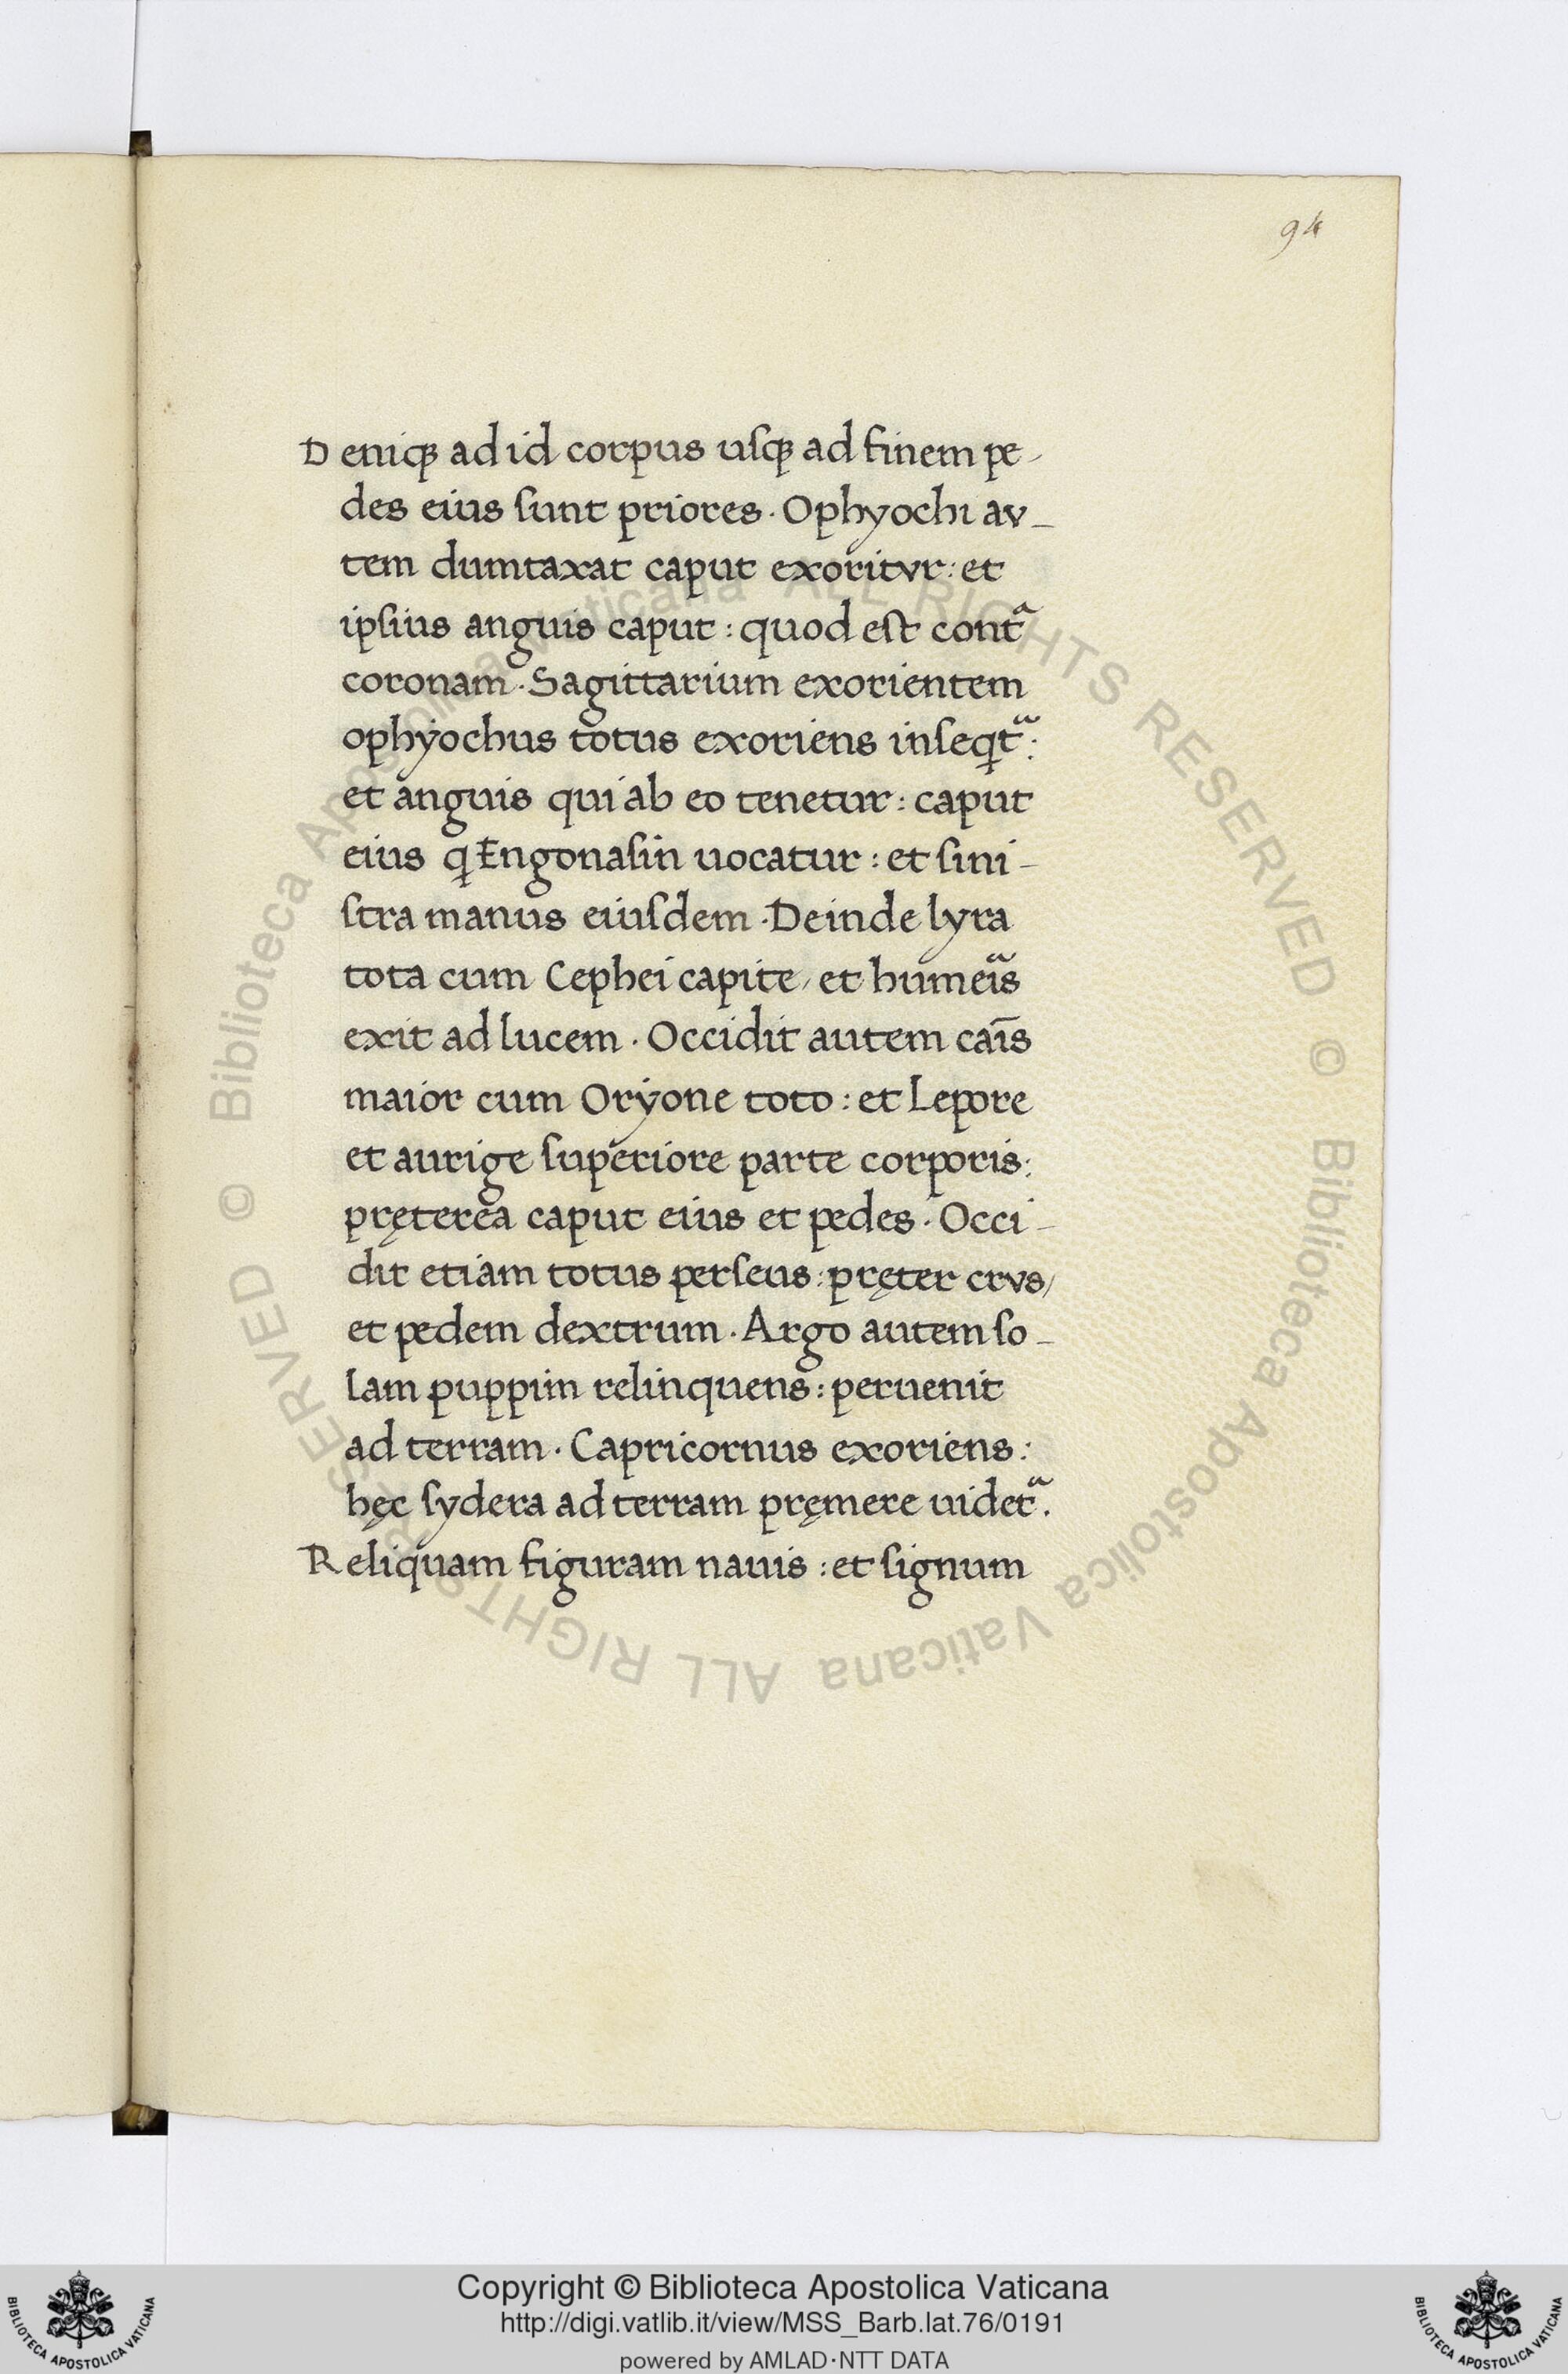 94
Deniqꝫ ad id corpus uſqꝫ ad finem pe-
des eius ſunt priores · Ophyochi av-
tem dumtaxat caput exoritvr : et
ipſius anguis caput : quod eſt contᵃ
coronam · Sagittarium exorientem
ophyochus totus exoriens inſeqͥtᷓ :
et anguis qui ab eo tenetur : caput
eius qͥ Engonaſin uocatur : et ſini-
ſtra manus eiuſdem · Deinde lyra
tota cum Cephei capite / et humeᷓis
exit ad lucem · Occidit autem caīs
maior cum Oryone toto : et Lepore
et aurige ſuperiore parte corporis :
pręterea caput eius et pedes · Occi-
dit etiam totus perſeus : pręter crvs /
et pedem dextrum · Argo autem ſo-
lam puppim relinquens : peruenit
ad terram · Capricornus exoriens :
hęc ſydera ad terram pręmere uidetᷓ .
Reliquam figuram nauis : et ſignum
© Biblioteca Apostolica Vaticana ALL RIGHTS RESERVED © Biblioteca Apostolica Vaticana ALL RIGHTS RESERVED
Copyright © Biblioteca Apostolica Vaticana
http://digi.vatlib.it/view/MSS_Barb.lat.76/0191
powered by AMLAD·NTT DATA
BIBLIOTECA APOSTOLICA VATICANA
BIBLIOTECA APOSTOLICA VATICANA